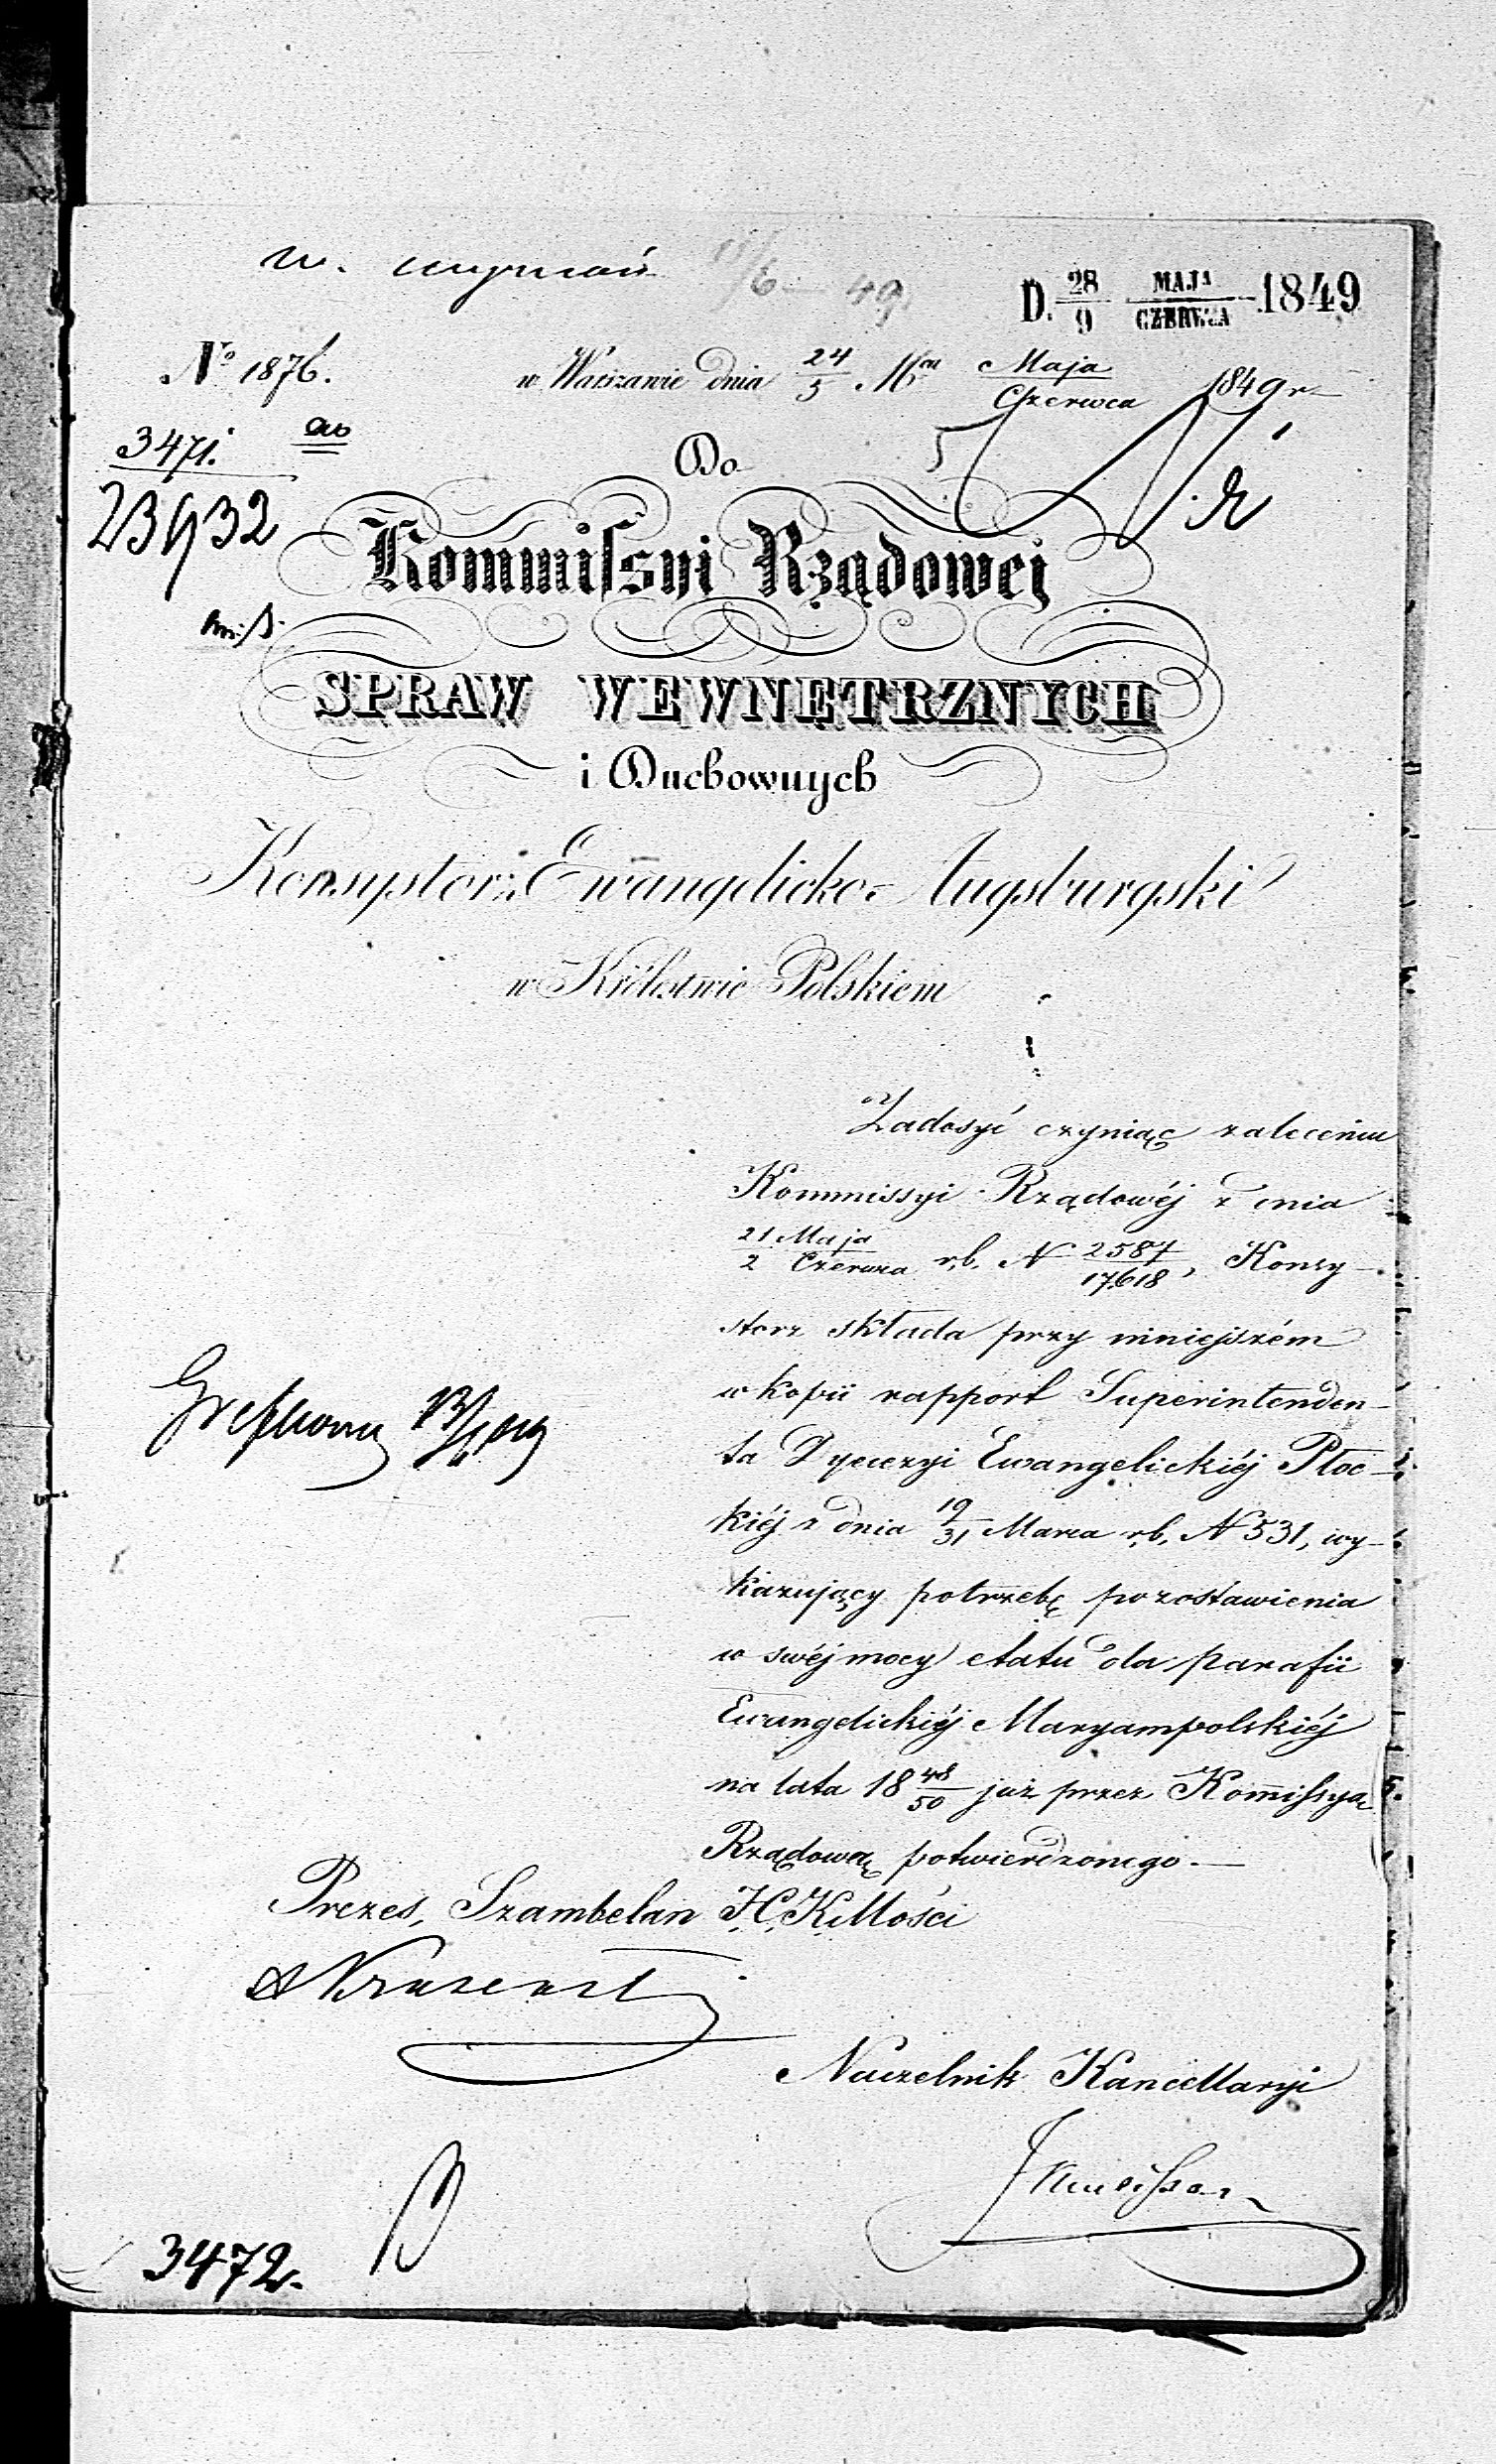 D. 28/9 MAJA/CZERWCA 1849
11/6 - 49
No 1876.
w Warszawie dnia 24/5 Mca Maja/Czerwca 1849 r
3471.
23932
Do
Kommissyi Rządowej
SPRAW WEWNĘTRZNYCH
i Duchownych
Konsystorz Ewangelicko-Augsburgski
w Królestwie Polskiem
Zadosyć czyniąc zaleceniu
Kommissyi Rządowéj z dnia
21 Maja/2 Czerwca r.b. N 2587/17618, Konsy-
storz składa przy niniejszém
w kopii rapport Superintenden-
ta Dyecezyi Ewangelickiéj Płoc-
kiéj z dnia 19/31 Marca r.b. N 531, wy-
kazujący potrzebę pozostawienia
w swéj mocy etatu dla parafii
Ewangelickiéj Maryampolskiéj
na lata 18 48/50 już przez Kommissyą
Rządową potwierdzonego.—
Prezes, Szambelan J.C.K.Mości
Naczelnik Kancellaryi
3472.